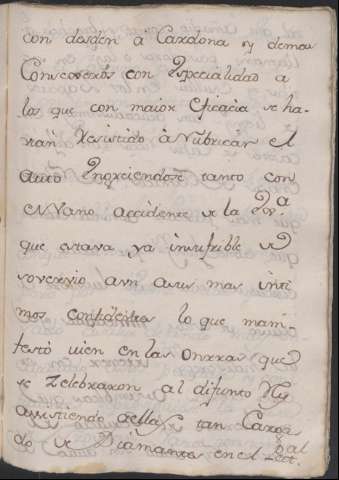 con desden à Cardona y demas
Consexeros con Especialidad a
los que con maior eficacia se ha-
vian Resistido à Rubricar el
auto
tanto con
el Vano accidente de la
que estava ya insufrible
sovervio aun a sus mas inti
mos confidentes lo que mani-
festó vien en las Onrras que
se Zelebraron al difunto Rey
assistiendo a ellas tan Carga
do de Diamantes en el